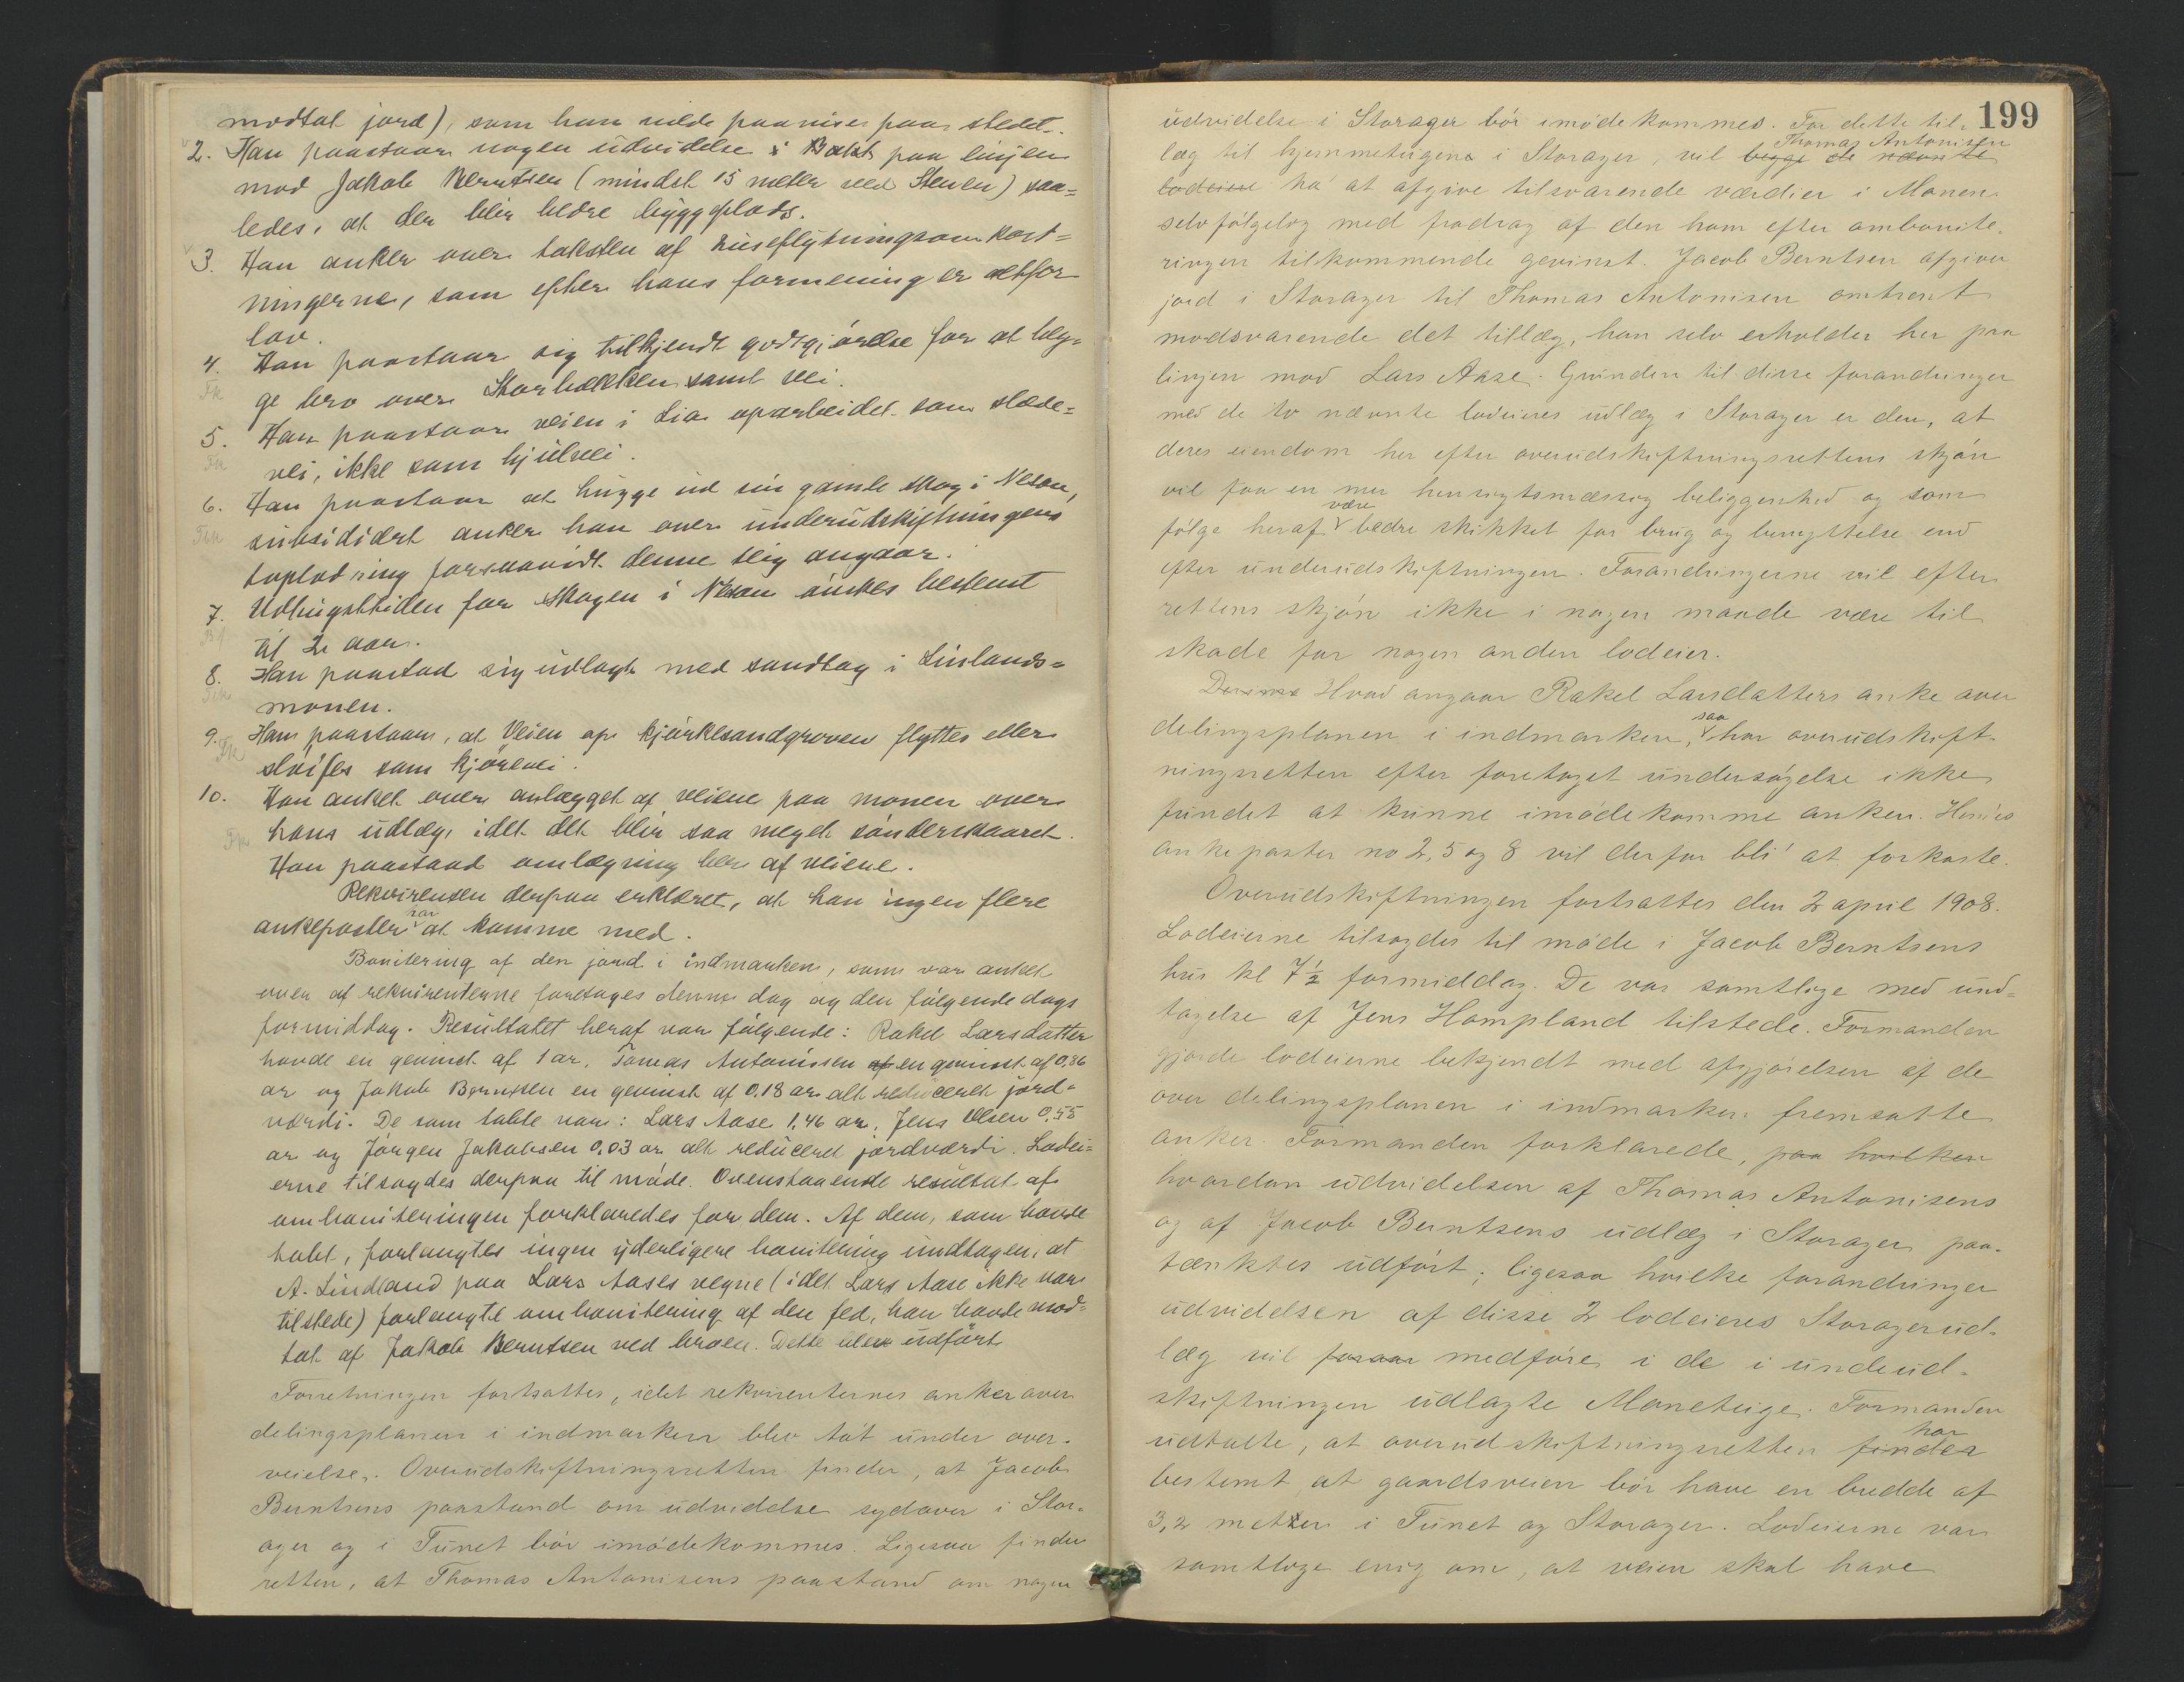 modtat jord), som han vilde paavise paa stedet.
2. Han paastaar nogen üdvidelse i Bakk paa linjen
mod Jakob Berntsen (mindst 15 meter ved Stenen) saa=
ledes, at der blir bedre byggeplads.
3. Han anker over taksten af huseflytningsomkost=
ningerne, som efter hans formening er altfor
lav.
4. Han paastaar sig tilkjendt godtgjörelse for at byg=
Fk
ge bro over Storbækken samt vei.
5. Han paastaar veien i Lia oparbeidet som slæde=
Fk
vei, ikke som hjülvei.
6. Han paastaar at hügge üd sin gamle skog i Nesan,
Fk
subsidiært anker han over ünderüdskiftningens
forsaavidt denne teig angaar.
7. Udhügsttiden for skogen i Nesan önskes bestemt
til 2 aar.
8. Han paastod sig üdlagt med sandtag i Linlands=
Fk
monen.
9. Han paastaar, at Veien op kjirkesandgroven flyttes eller
Fk
slöifes som kjörevei.
10. Han anket over anlægget af veiene paa monen over
hans üdlæg, idet det blir saa meget sönderskaaret.
Fk
Han paastaad omlægning her af veiene.
Rekvirenten derpaa erklæret, at han ingen flere
har
ankeposter at komme med.
Bonitering af den jord i indmarken, som var anket
over af rekvirenterne foretoges denne dag og den fölgende dags
formiddag. Resültatet heraf var fölgende: Rakel Larsdatter
havde en gevinst af 1 ar, Tomas Antonissen af en gevinst af 0,86
ar og Jakob Berntsen en gevinst af 0,18 ar alt redüceret jord=
værdi. De som tabte var: Lars Aase 1,46 ar, Jens Olsen 0,55
ar og Jörgen Jakobsen 0,03 ar alt redüceret jordværdi. Lodei=
erne tilsagdes derpaa til möde. Ovenstaaende resültat af
omboniteringen forklaredes for dem. Af dem, som havde
tabt, forlangtes ingen yderligere bonitering ündtagen, at
A. Lindland paa Lars Aases vegne (idet Lars Aase ikke var
tilstede) forlangte ombonitering af den fed, han havde mod=
tat af Jakob Berntsen ved broen. Dette blev üdfört.
Forretningen fortsattes, idet rekvirenternes anker over
delingsplanen i indmarken blev tat ünder over-
veielse. Overüdskiftningsretten finder, at Jacob
Berntsens paastand om üdvidelse sydover i Stor-
ager og i Tünet bör imödekommes. Ligesaa finder
retten, at Thomas Antonisens paastand om nogen
199
üdvidelse i Storager bör imödekommes. For dette til-
Thomas Antonisen
læg til hjemmeteigene i Storager, vil begge de nævnte
lodeiere ha at afgive tilsvarende værdier i Monen
selvfölgelig med fradrag af den ham efter ombonite-
ringen tilkommende gevinst. Jacob Berntsen afgiver
jord i Storager til Thomas Antonisen omtrent
modsvarende det tillæg, han selv erholder her paa
linjen mod Lars Aase. Gründen til disse forandringer
med de to nævnte lodeieres üdlæg i Storager er den, at
deres eiendom her efter overüdskiftningsrettens skjön
vil faa en mer hensigtsmæssig beliggenhed og som
være
fölge heraf bedre skikket for brüg og benyttelse end
efter ünderüdskiftningen. Forandringerne vil efter
rettens skjön ikke i nogen maade være til
skade for nogen anden lodeier.
Hvad angaar Rakel Larsdatters anke over
saa
delingsplanen i indmarken, har overüdskift-
ningsretten efter foretaget ündersögelse ikke
fündet at künne imödekomme anken. Hendes
ankeposter no 2, 5 og 8 vil derfor bli at forkaste.
Overüdskiftningen fortsattes den 2 april 1908.
Lodeierne tilsagdes til möde i Jacob Berntsens
hüs kl 7½ formiddag. De var samtlige med ünd=
tagelse af Jens Hompland tilstede. Formanden
gjorde lodeierne bekjendt med afgjörelsen af de
over delingsplanen i indmarken fremsatte
anker. Formanden forklarede, paa hvilken
hvordan üdvidelsen af Thomas Antonisens
og af Jacob Berntsens üdlæg i Storager paa-
tænktes üdfört; ligesaa hvilke forandringer
üdvidelsen af disse 2 lodeieres Storagerüd-
læg vil medföre i de i ünderüd-
skiftningen üdlagte Moneteige. Formanden
har
üdtalte, at overüdskiftningsretten finder
bestemt at gaardsveien bör have en bredde af
3,2 meter i Tünet og Storager. Lodeierne var
samtlige enig om, at veien skal have